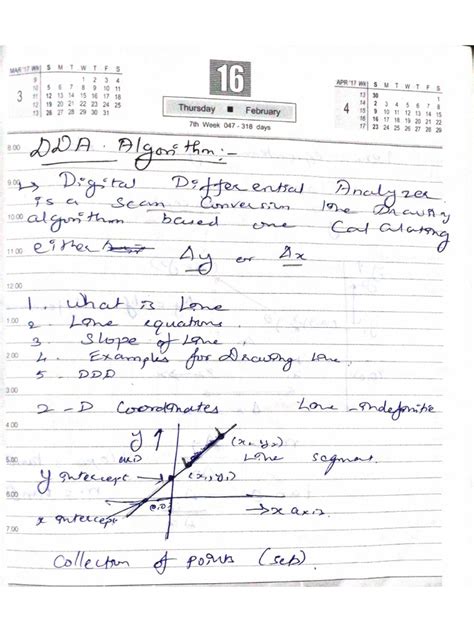 MAR '17 WK S M T W T F S
9 1 2 3 4
10 5 6 7 8 9 10 11
3 11 12 13 14 15 16 17 18
12 19 20 21 22 23 24 25
13 26 27 28 29 30 31
16
Thursday ■ February
7th Week 047 - 318 days
APR '17 WK S M T W T F S
13 30 1
14 2 3 4 5 6 7 8
4 15 9 10 11 12 13 14 15
16 16 17 18 19 20 21 22
17 23 24 25 26 27 28 29
8.00 DDA Algorithm:-
9.00 Digital Differential Analyzer
is a Scan Conversion line Drawing
10.00 algorithm based one Calculating
11.00 either Δy or Δx
12.00
1. What is Line
1.00 2. Line equations.
3. Slope of Line.
2.00 4. Examples for Drawing line.
3.00 5. DDD
2-D Coordinates Line - indefinite
4.00 y ↑ (x2, y2)
5.00 axis Line segment.
y intercept → (x1, y1)
6.00 (0,0) → x axis
x intercept
7.00
Collection of points (set)